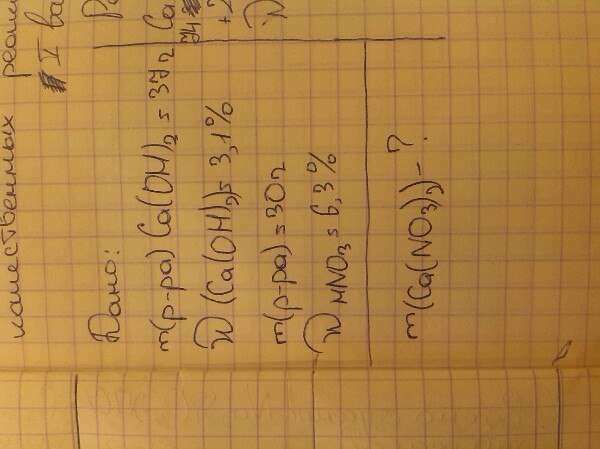 качественных реакци
I ва
Дано:
m(р-ра) Ca(OH)₂ = 37г
W (Ca(OH)₂) = 3,1%
m(р-ра) = 30г
W HNO₃ = 6,3%
m(Ca(NO₃)₂) - ?
Ca
74
+2